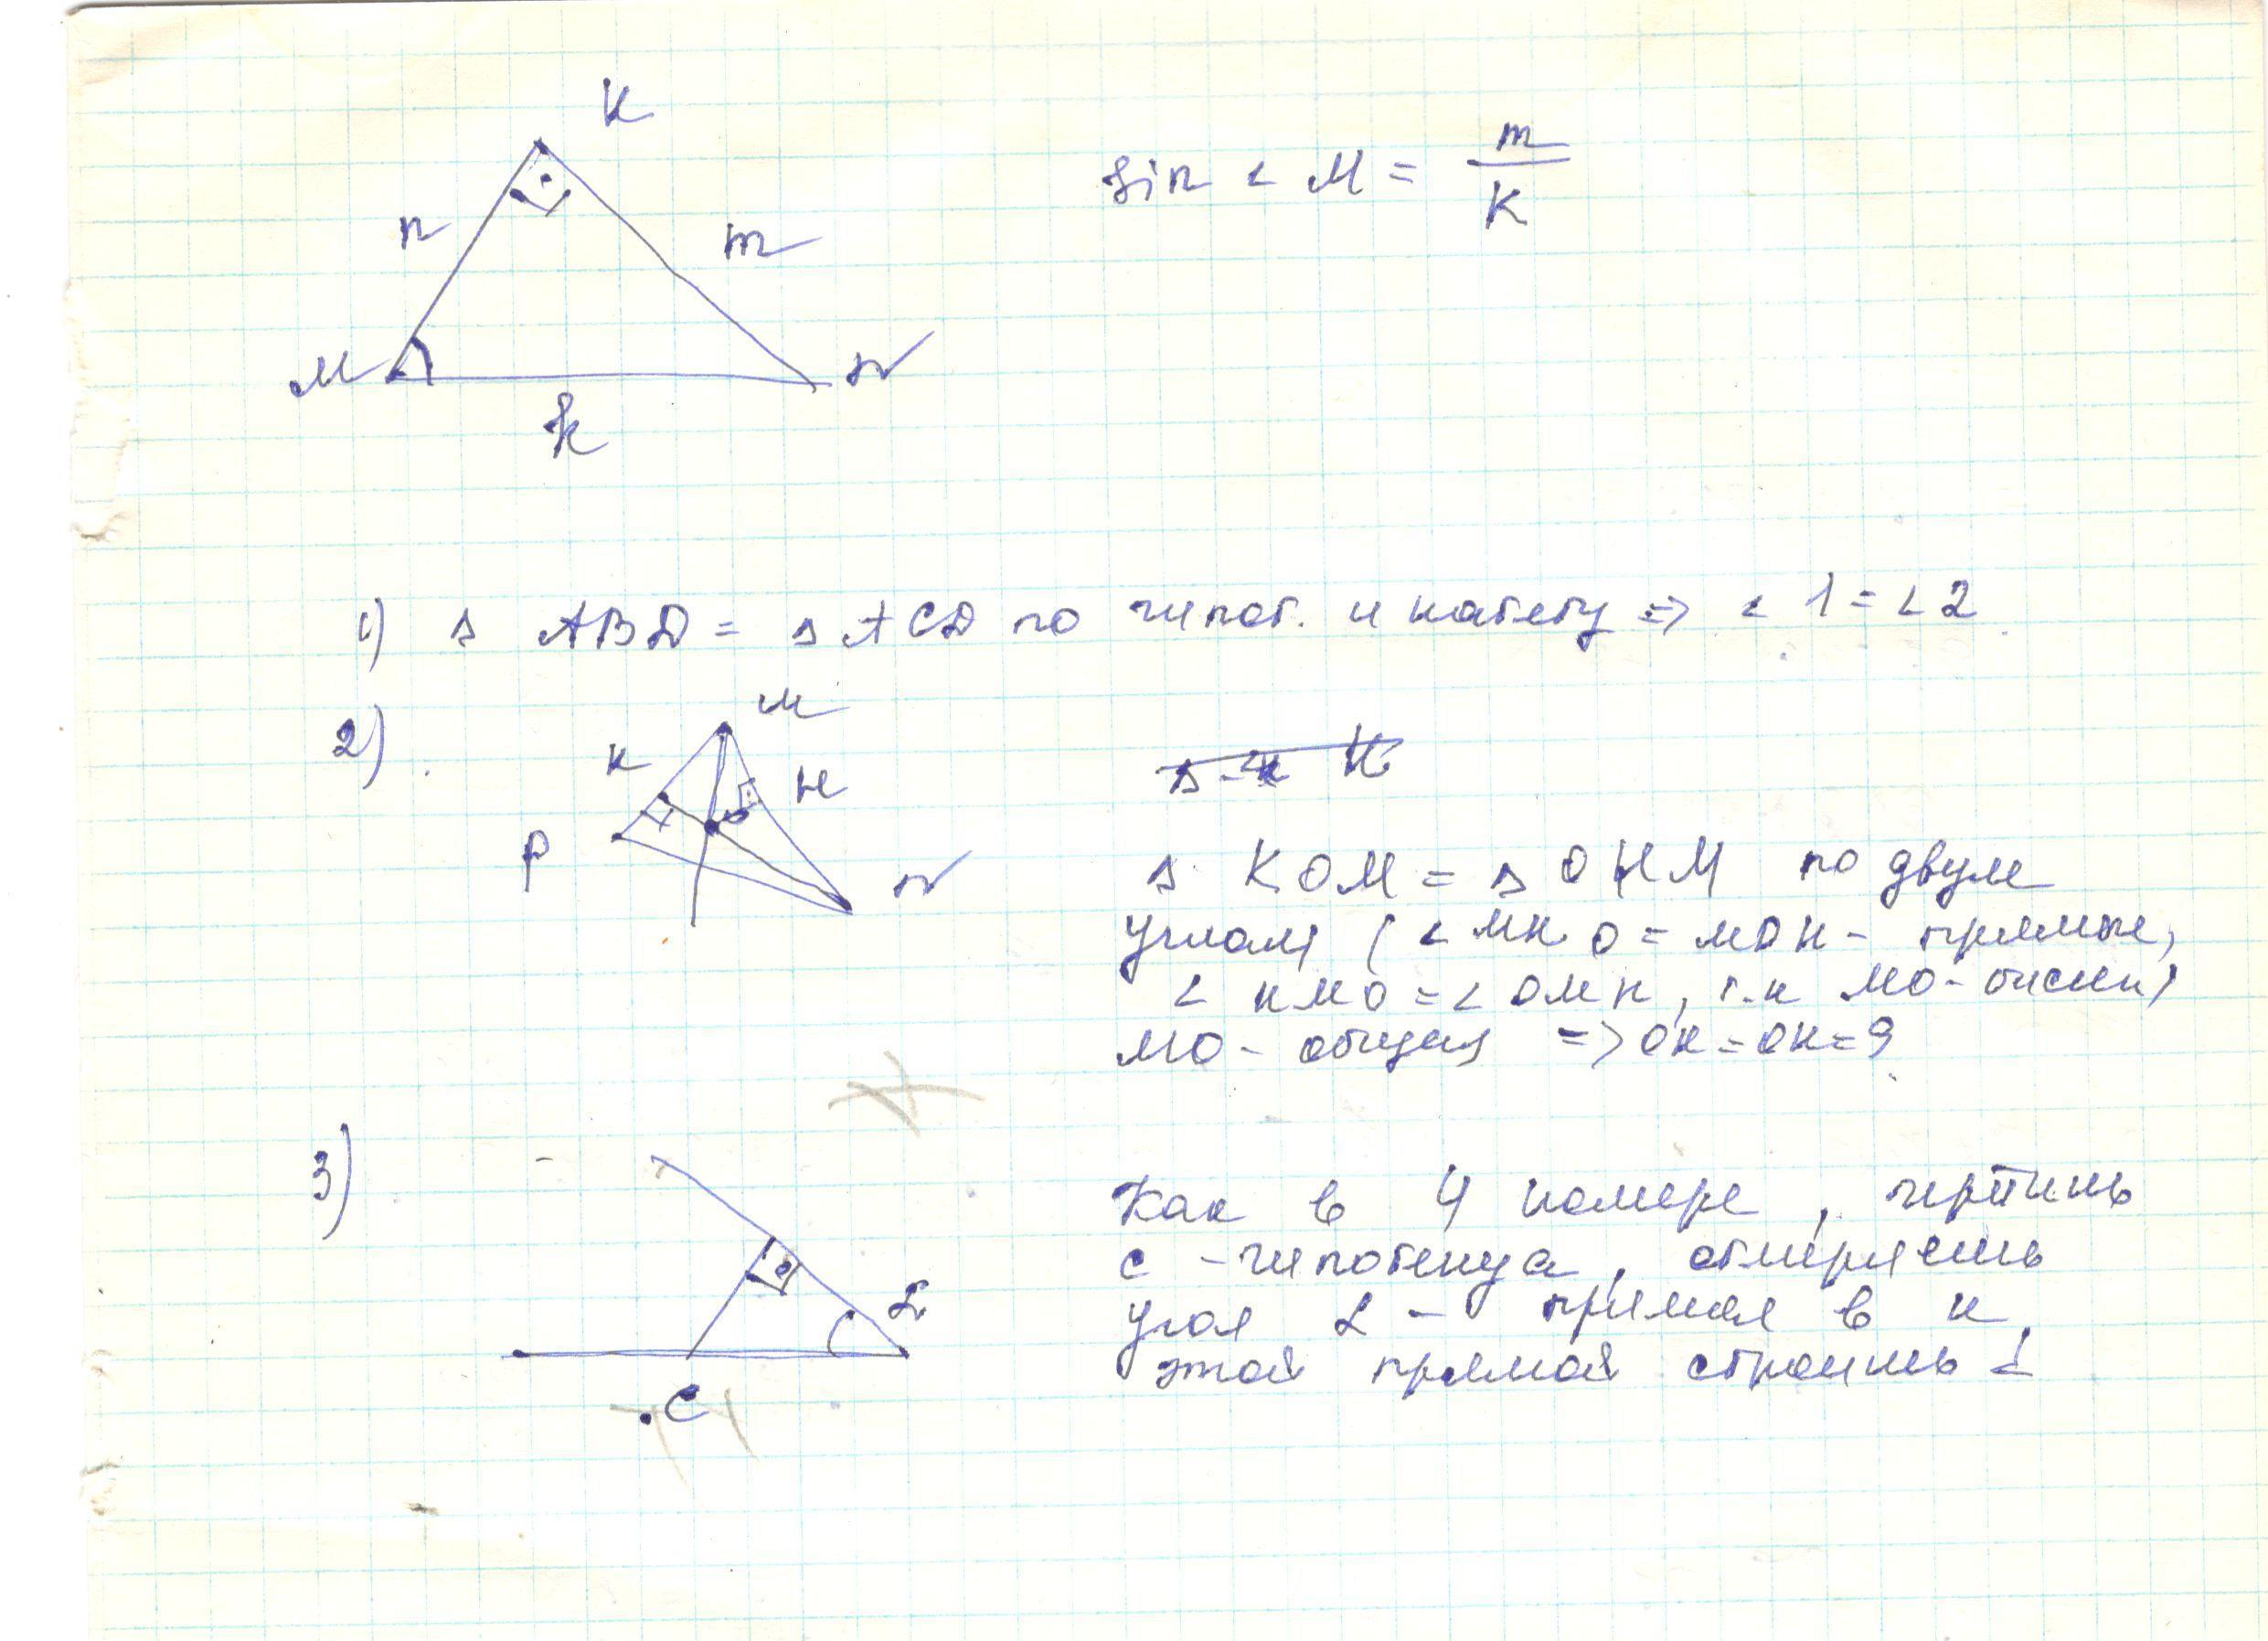 K
sin ∠ M = m/K
n
m
M
N
k
1) Δ ABD = Δ ACD по гипот. и катету => ∠ 1 = ∠ 2
2)
M
K
H
P
N
Δ KOM = Δ OHM по двум
углам ( ∠ MKO = MOH - прямые,
∠ KMO = ∠ OMH, т.к MO - бисси)
MO - общая => OK = OH = 9
3)
Как в 4 номере, чертишь
c - гипотенуза, отмеряешь
угол α - прямая в к
этой прямой строишь ⊥
α
C